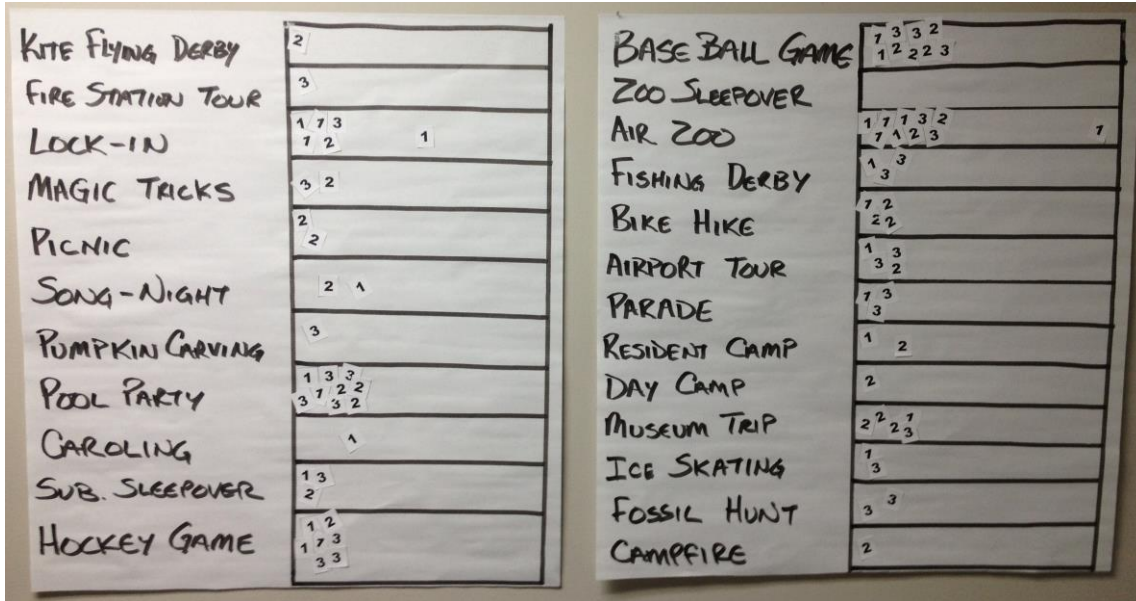 KITE FLYING DERBY 2
FIRE STATION TOUR 3
LOCK-IN 1 1 3
1 2 1
MAGIC TRICKS 3 2
PICNIC 2
2
SONG-NIGHT 2 1
PUMPKIN CARVING 3
POOL PARTY 1 3 3
3 1 2 2
3 2
CAROLING 1
SUB. SLEEPOVER 1 3
2
HOCKEY GAME 1 2
1 1 3
3 3
BASE BALL GAME 1 3 3 2
1 2 2 2 3
ZOO SLEEPOVER
AIR ZOO 1 1 1 3 2
1 1 2 3 1
FISHING DERBY 1 3
3
BIKE HIKE 1 2
2 2
AIRPORT TOUR 1 3
3 2
PARADE 1 3
3
RESIDENT CAMP 1 2
DAY CAMP 2
MUSEUM TRIP 2 2 2 1
3
ICE SKATING 1
3
FOSSIL HUNT 3 3
CAMPFIRE 2